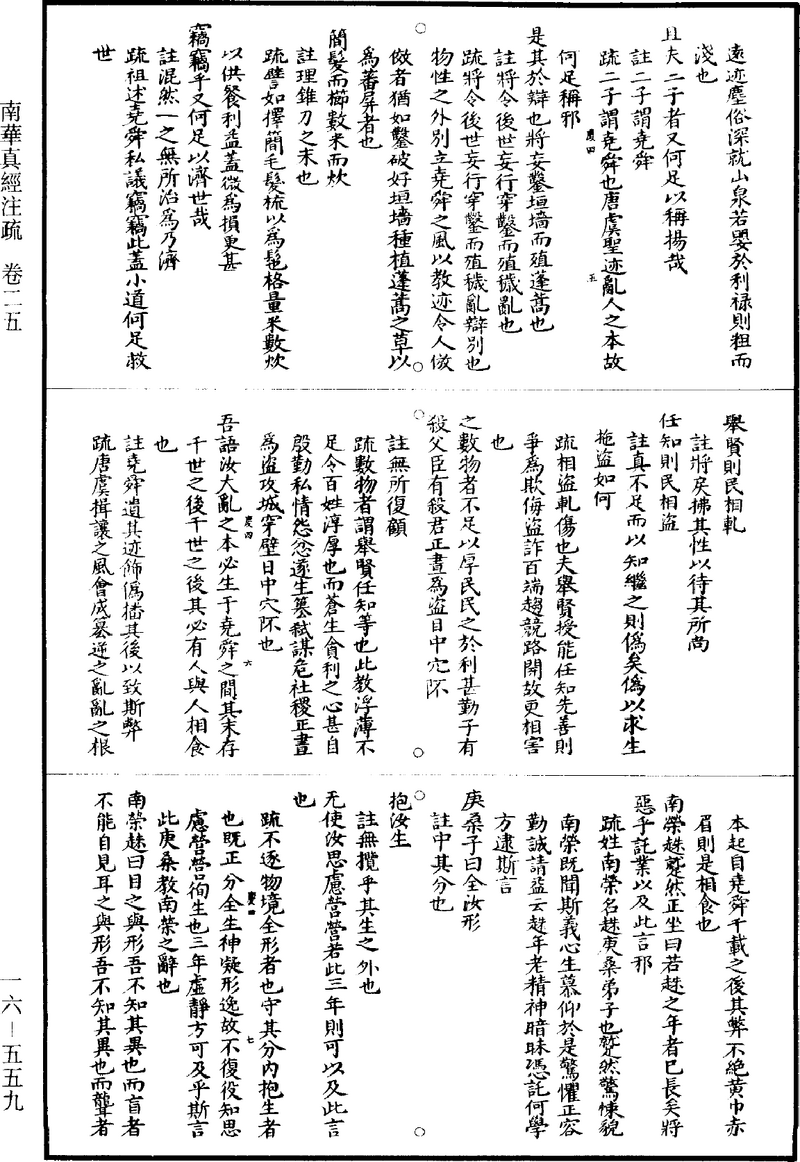 南華真經注疏　卷二五
一六—五五九
遠迹塵俗深就山泉若嬰於利祿則粗而
淺也
且夫二子者又何足以稱揚哉
註二子謂堯舜
疏二子謂堯舜也唐虞聖迹亂人之本故
慶四
五
何足稱邪
是其於辯也將妄鑿垣墻而殖蓬蒿也
註將令後世妄行穿鑿而殖穢亂也
疏將令後世妄行穿鑿而殖穢亂辯別也
物性之外別立堯舜之風以教迹令人倣
倣者猶如鑿破好垣墻種植蓬蒿之草以
為蕃屏者也
簡髮而櫛數米而炊
註理錐刀之末也
疏譬如擇簡毛髮梳以為髢格量米數炊
以供餐利益蓋微為損更甚
竊竊乎又何足以濟世哉
註混然一之無所治為乃濟
疏祖述堯舜私議竊竊此蓋小道何足救
世
舉賢則民相軋
註將戾拂其性以待其所尚
任知則民相盜
註真不足而以知繼之則偽矣偽以求生
拖盜如何
疏相盜軋傷也夫舉賢授能任知先善則
爭為欺侮盜詐百端趨競路開故更相害
也
之數物者不足以厚民民之於利甚勤子有
殺父臣有殺君正晝為盜日中穴阫
註無所復顧
疏數物者謂舉賢任知等也此教浮薄不
足令百姓淳厚也而蒼生貪利之心甚自
殷勤私情怨忿遂生篡弒謀危社稷正晝
為盜攻城穿壁日中穴阫也
吾語汝大亂之本必生于堯舜之間其末存
慶四
六
千世之後千世之後其必有人與人相食
也
註堯舜遺其迹飾偽播其後以致斯弊
疏唐虞揖讓之風會成篡逆之亂亂之根
本起自堯舜千載之後其弊不絕黃巾赤
眉則是相食也
南榮趎蹵然正坐曰若趎之年者已長矣將
惡乎託業以及此言邪
疏姓南榮名趎庚桑弟子也蹵然驚悚貌
南榮既聞斯義心生慕仰於是驚懼正容
勤誠請益云趎年老精神暗昧憑託何學
方逮斯言
庚桑子曰全汝形
註中其分也
抱汝生
註無攬乎其生之外也
无使汝思慮營營若此三年則可以及此言
也
疏不逐物境全形者也守其分內抱生者
慶四
七
也既正分全生神凝形逸故不復役知思
慮營營徇生也三年虛靜方可及乎斯言
此庚桑教南榮之辭也
南榮趎曰目之與形吾不知其異也而盲者
不能自見耳之與形吾不知其異也而聾者